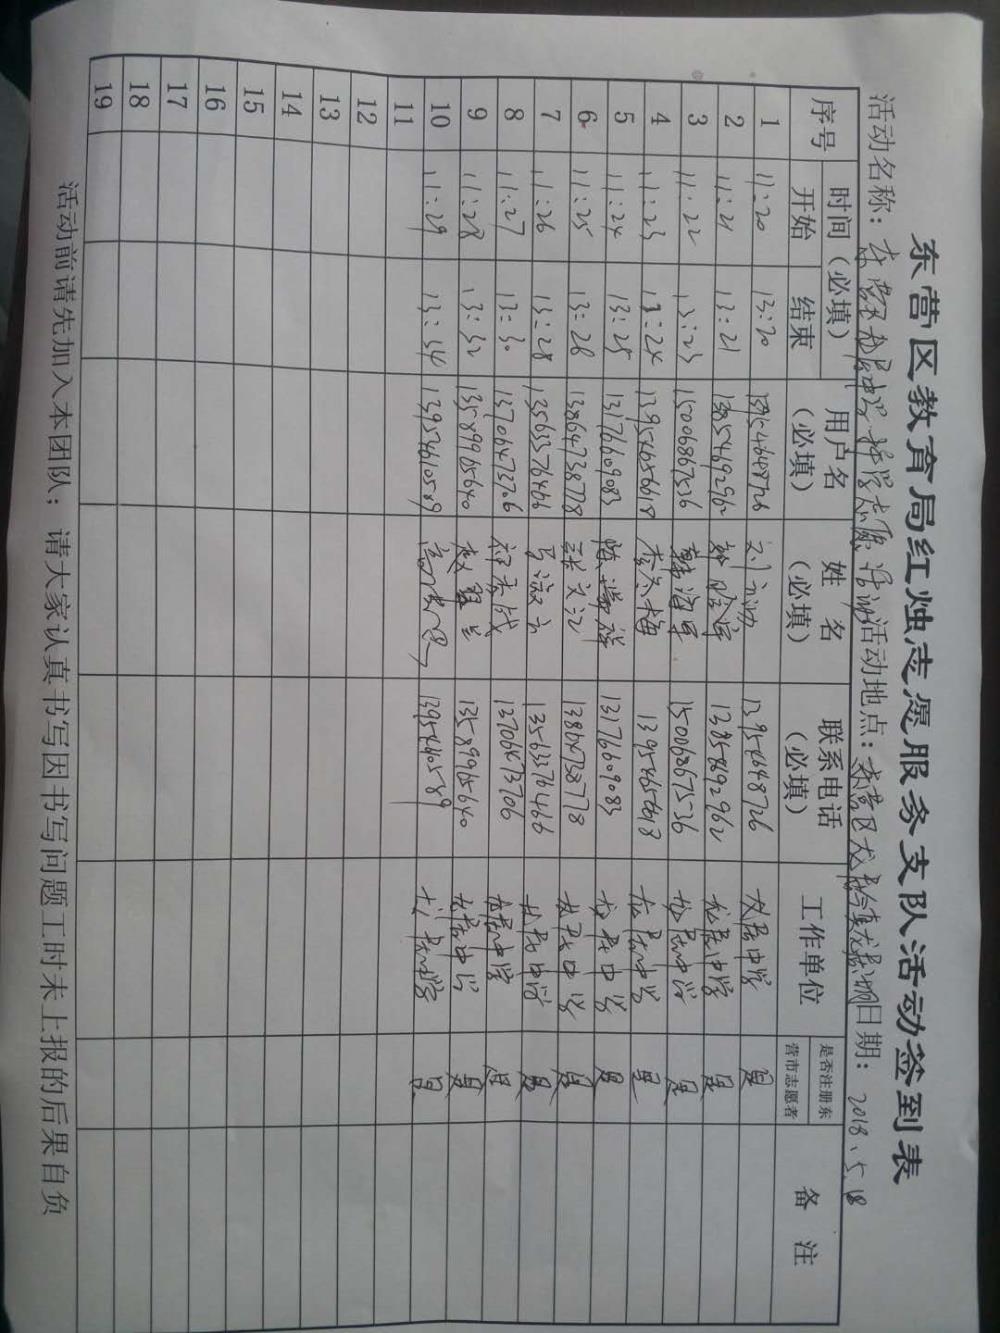 东营区教育局红烛志愿服务支队活动签到表
活动名称： 志愿活动 活动地点： 东营区 日期： 2018、5.18
序号 时间（必填） 开始 结束 用户名（必填） 姓名（必填） 联系电话（必填） 工作单位 是否注册东营市志愿者 备注
1 11:20 13:20 13954648726 13954648726 龙居中学 是
2 11:21 13:21 13854692962 13854692962 龙居中学 是
3 11:22 13:23 15006867536 韩海军 15006867536 龙居中学 是
4 11:23 13:24 13954656618 李冬梅 13954656618 龙居中学 是
5 11:24 13:25 13176609083 13176609083 龙居中学 是
6 11:25 13:26 13864738778 13864738778 龙居中学 是
7 11:26 13:28 13563376466 13563376466 龙居中学 是
8 11:27 13:30 13706473706 13706473706 龙居中学 是
9 11:28 13:32 13589965640 13589965640 龙居中学 是
10 11:29 13:34 龙居中学 是
11
12
13
14
15
16
17
18
19
活动前请先加入本团队；请大家认真书写因书写问题工时未上报的后果自负